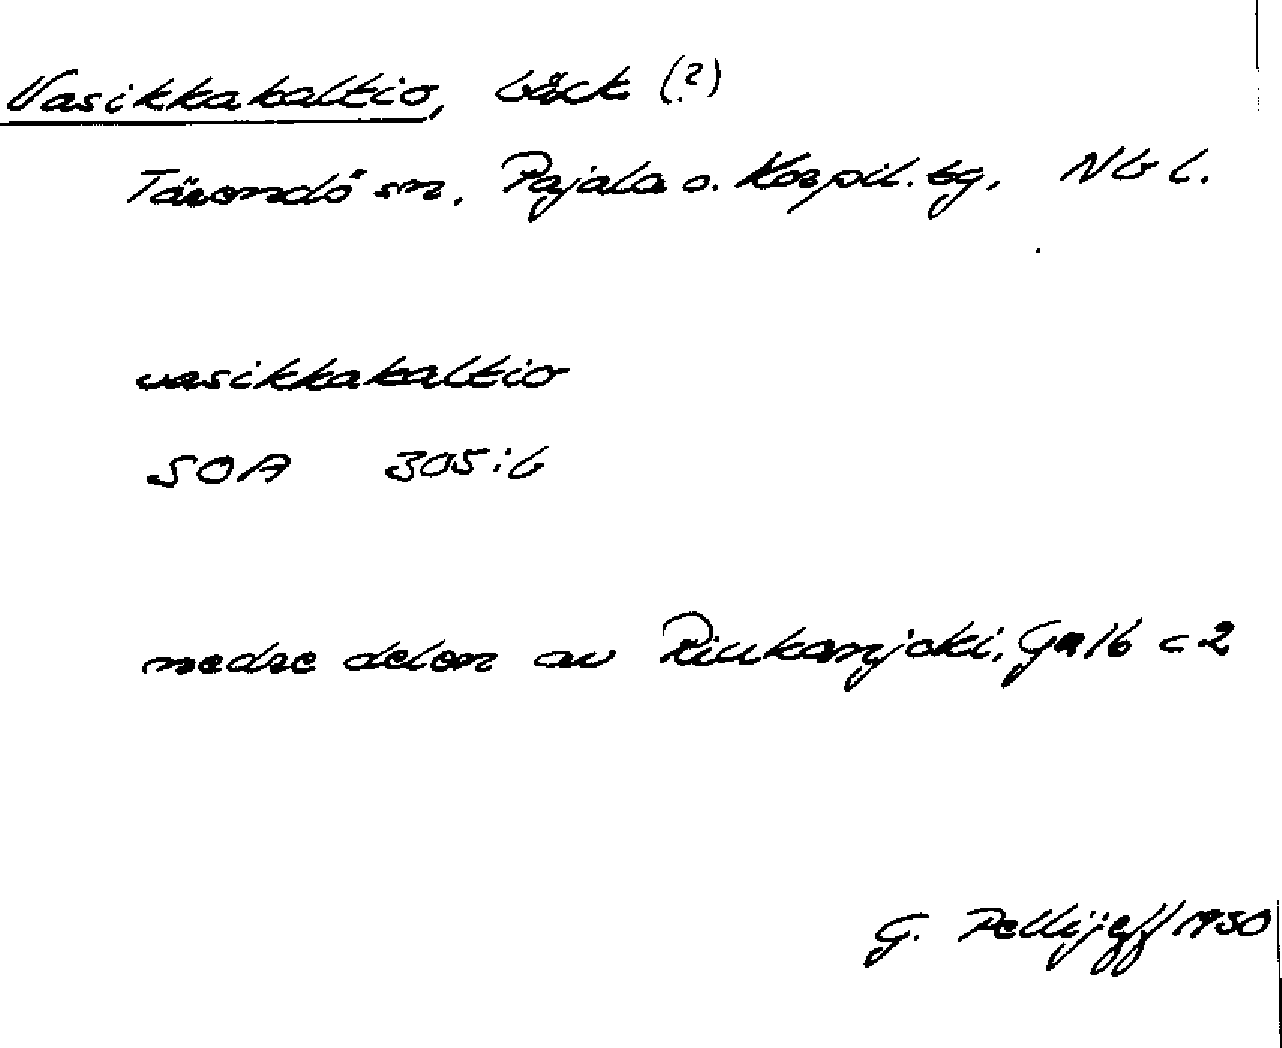 Vasikkakaltio, bäck (?)
Tärendö sn. Pajala o. Korpil. tg. Nb l.
vasikkakaltio
SOA 305:6
nedre delen av Riukanjoki, Ga 16 c 2
G. Pellijeff 1950